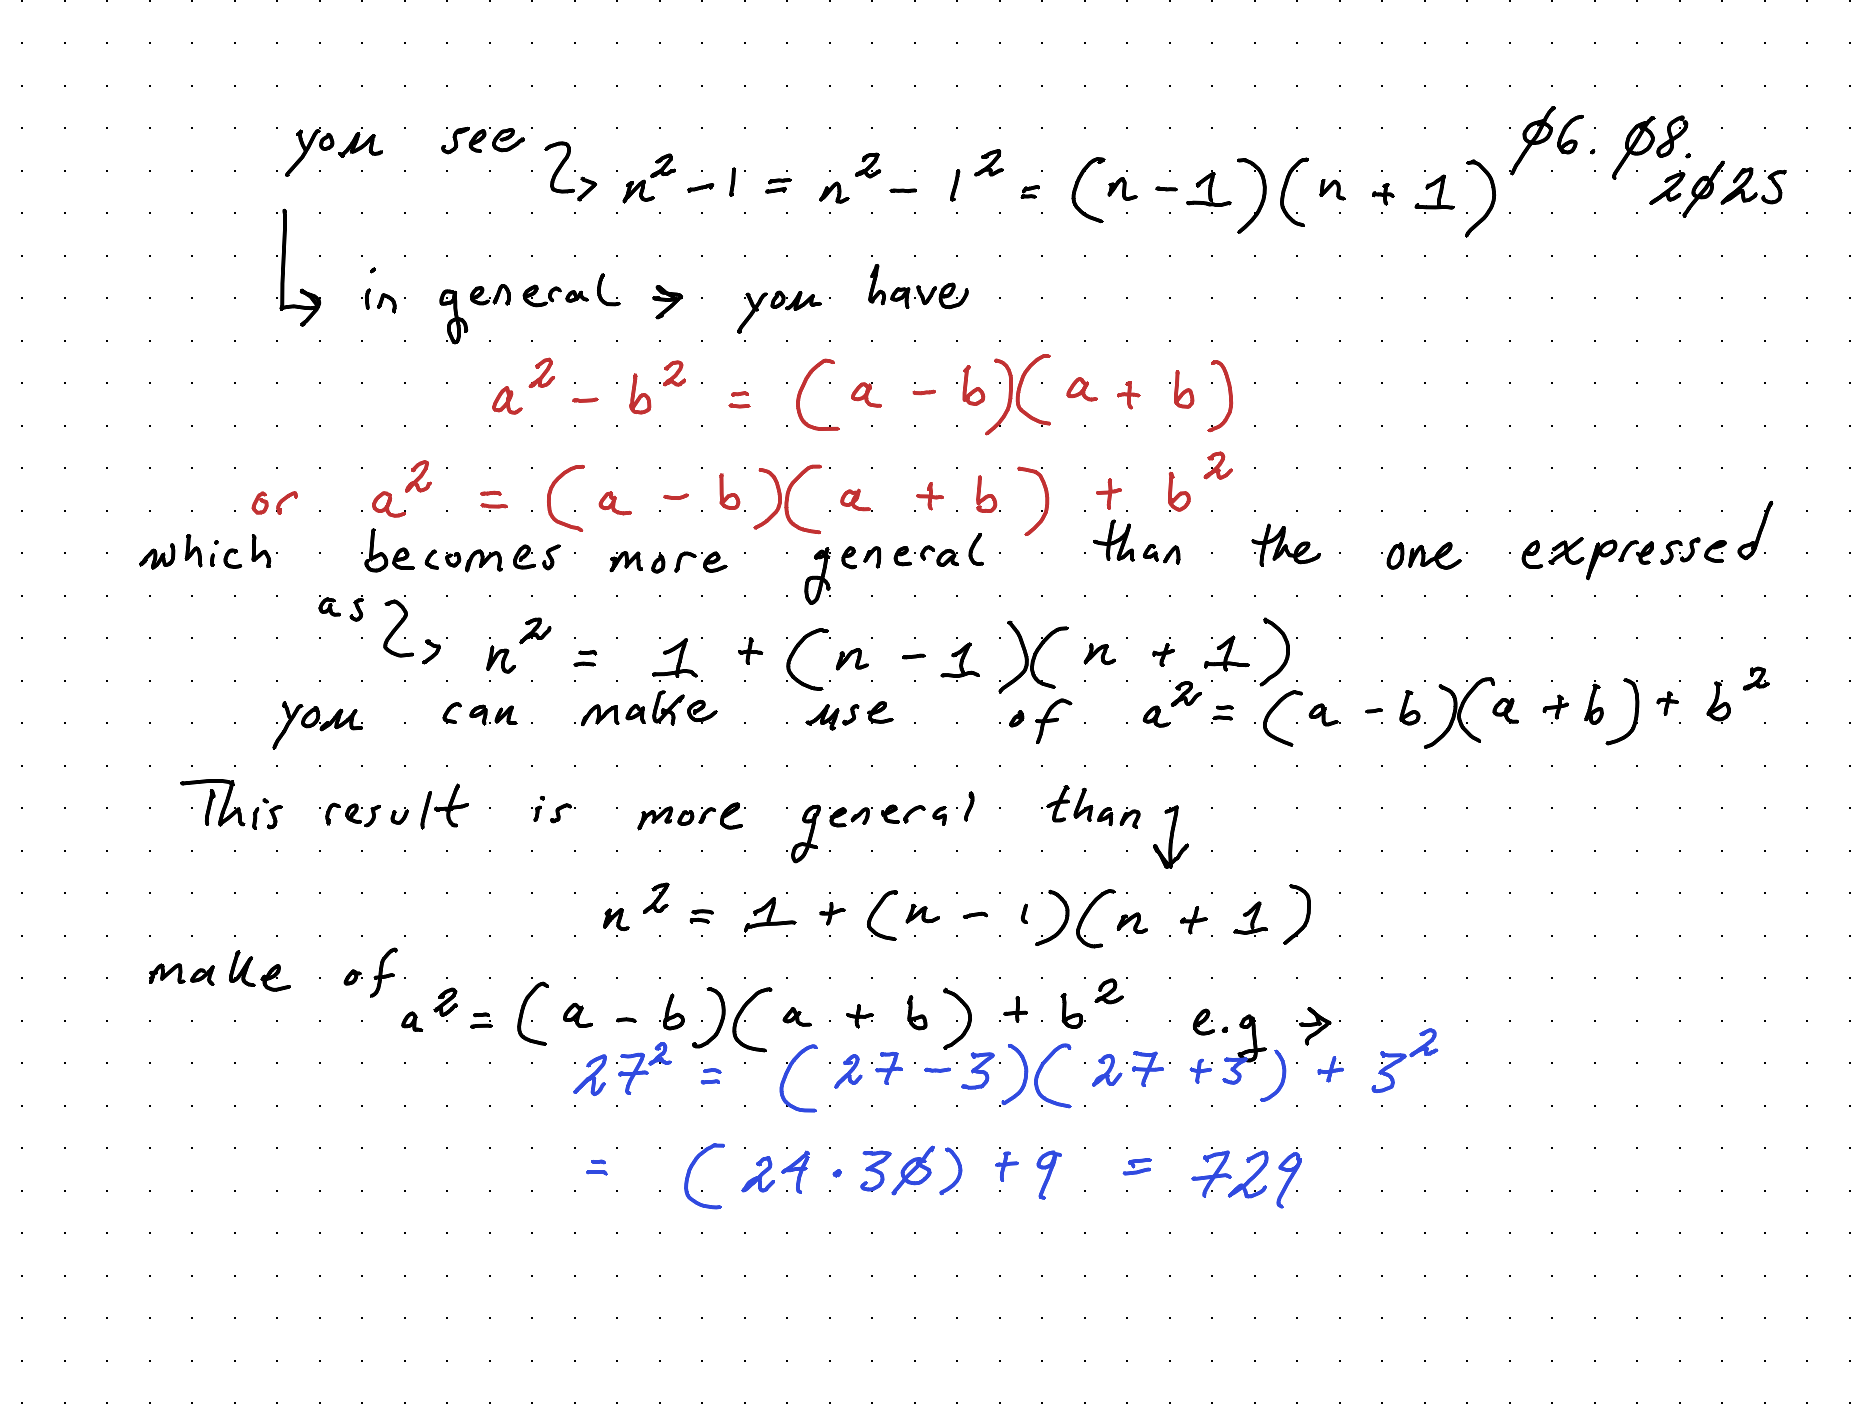 you see ↝ n² - 1 = n² - 1² = (n - 1)(n + 1) Ø6. Ø8.
2Ø25
↳ in general → you have
a² - b² = (a - b)(a + b)
or a² = (a - b)(a + b) + b²
which becomes more general than the one expressed
as ↝ n² = 1 + (n - 1)(n + 1)
you can make use of a² = (a - b)(a + b) + b²
This result is more general than ↓
n² = 1 + (n - 1)(n + 1)
make of
a² = (a - b)(a + b) + b² e.g →
27² = (27 - 3)(27 + 3) + 3²
= (24 · 3Ø) + 9 = 729